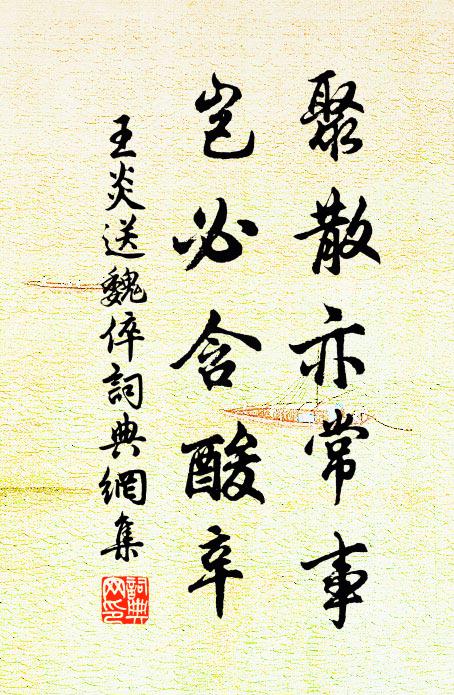 聚散亦常事
豈必含酸辛
王炎送魏倅詞典網集
詞典
網印